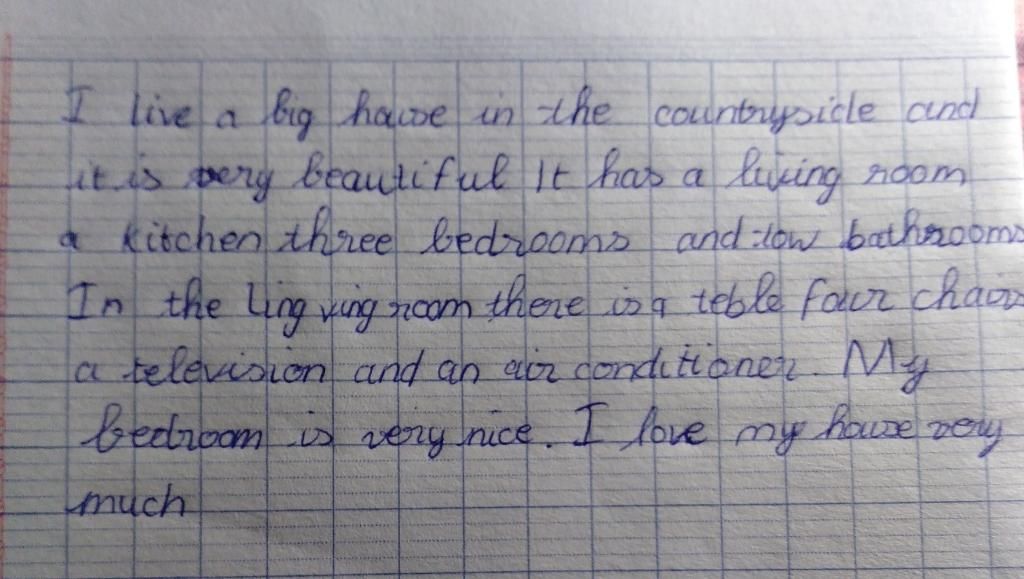 I live a big house in the countryside and
it is very beautiful It has a living room
a kitchen three bedrooms and tow bathrooms
In the Ling ving room there is a teble four chairs
a television and an air conditioner. My
bedroom is very nice. I love my house very
much